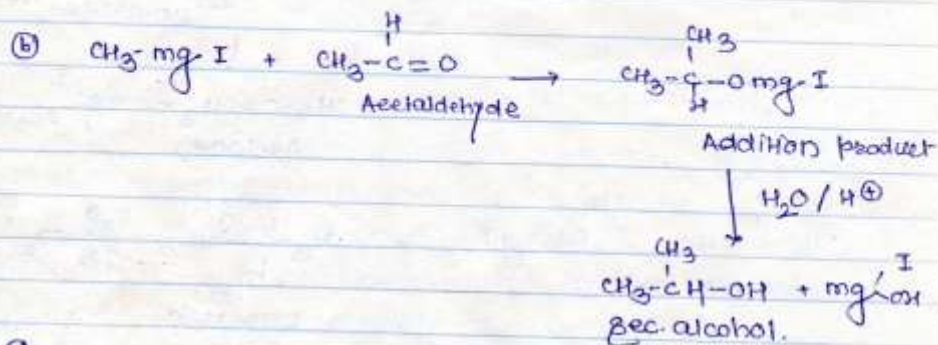 H
ⓑ CH3-mg-I + CH3-C=O → CH3-C-OmgI
CH3
H
Acetaldehyde
Addition product
H2O / H⊕
CH3
CH3-CH-OH + mg I OH
Sec. alcohol.